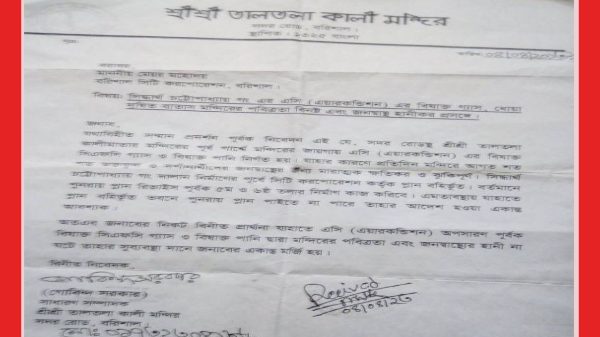 শ্রীশ্রী তালতলা কালী মন্দির
সদর রোড, বরিশাল।
স্থাপিত : ১৩২৫ বাংলা
বরাবর
মাননীয় মেয়র মহোদয়
বরিশাল সিটি কর্পোরেশন, বরিশাল।
বিষয়: সিদ্ধার্থ চট্টোপাধ্যায় গং এর এসি (এয়ারকন্ডিশন) এর বিষাক্ত গ্যাস, ধোয়া
মন্দিরের পবিত্রতা বিনষ্ট এবং জনস্বাস্থ্যে হানীকর প্রসঙ্গে।
জনাব,
যথাবিহীত সম্মান প্রদর্শন পূর্বক নিবেদন এই যে, সদর রোডস্থ শ্রীশ্রী তালতলা
কালীমাতার মন্দিরের পূর্ব পার্শ্বে মন্দিরের জায়গায় এসি (এয়ারকন্ডিশন) এর বিষাক্ত
সিএফসি গ্যাস ও বিষাক্ত পানি নির্গত হয়। যাহার কারণে প্রতিদিন মন্দিরে আগত শত
শত ভক্তবৃন্দ ও জনস্বাস্থ্যের জন্য মারাত্মক ক্ষতিকর ও ঝুকিপূর্ণ। সিদ্ধার্থ
চট্টোপাধ্যায় গং দালান নির্মানের পূর্বে সিটি কর্পোরেশন কর্তৃক প্লান বহির্ভূত। বর্তমানে
পুনরায় প্লান রিভাইস পূর্বক ৫ম ও ৬ষ্ঠ তলার নির্মাণ কাজ করিবে। এমতাবস্থায় যাহাতে
প্লান বহির্ভূত ভবনে পুনরায় প্লান পাইতে না পারে তাহার আদেশ হওয়া একান্ত
আবশ্যক।
অতএব জনাবের নিকট বিনীত প্রার্থনা যাহাতে এসি (এয়ারকন্ডিশন) অপসারণ পূর্বক
বিষাক্ত সিএফসি গ্যাস ও বিষাক্ত পানি দ্বারা মন্দিরের পবিত্রতা এবং জনস্বাস্থ্যের হানী না
ঘটে তাহার সুব্যবস্থা দানে জনাবের একান্ত মর্জি হয়।
বিনীত নিবেদক,
(গোবিন্দ সরকার)
সাধারণ সম্পাদক
শ্রীশ্রী তালতলা কালী মন্দির
সদর রোড, বরিশাল
Received
08/08/23